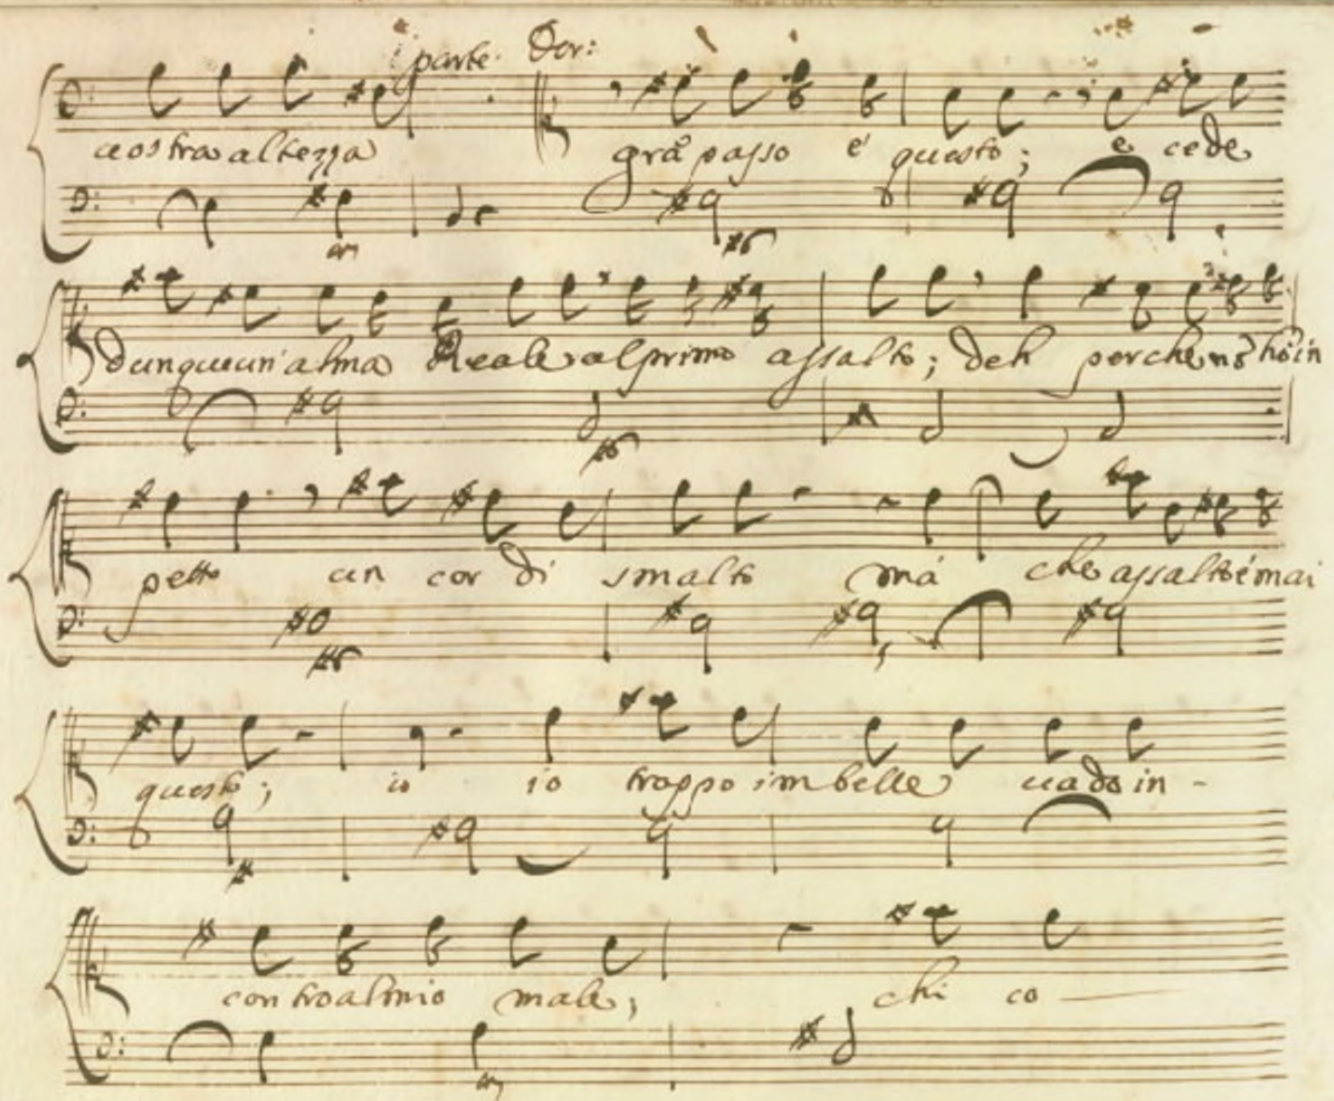 parte. Dor:
uostra altezza grã passo è questo; e cede
dunque un' alma Reale al primo assalto; deh perche nõ hò in
petto un cor di smalto mà che assalto è mai
questo; io io troppo imbelle uado in-
contro al mio male; chi co